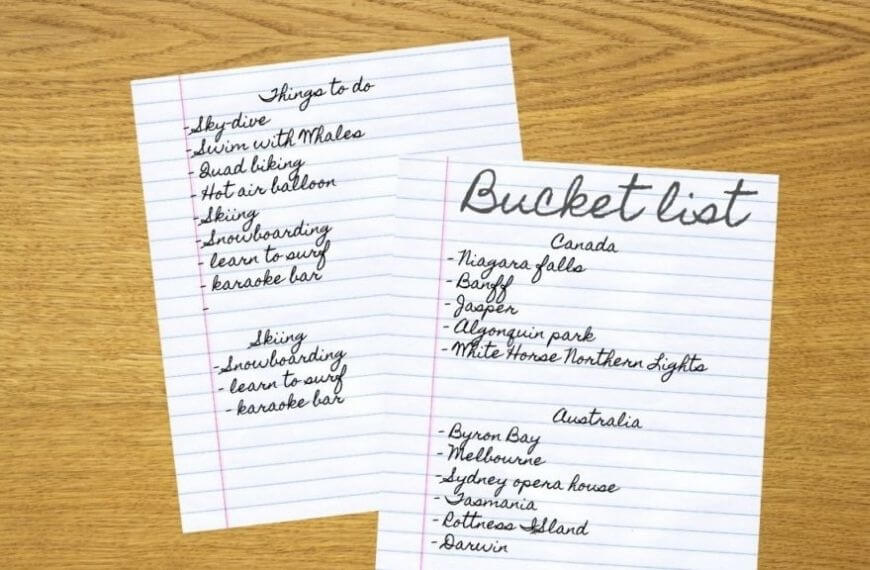 Things to do
-Sky-dive
-Swim with Whales
-Quad biking
-Hot air balloon
-Skiing
-Snowboarding
- learn to surf
- karaoke bar
-
Skiing
-Snowboarding
- learn to surf
- karaoke bar
Bucket list
Canada
-Niagara falls
-Banff
-Jasper
-Algonquin park
-White Horse Northern Lights
Australia
-Byron Bay
-Melbourne
-Sydney opera house
-Tasmania
-Rottness Island
-Darwin